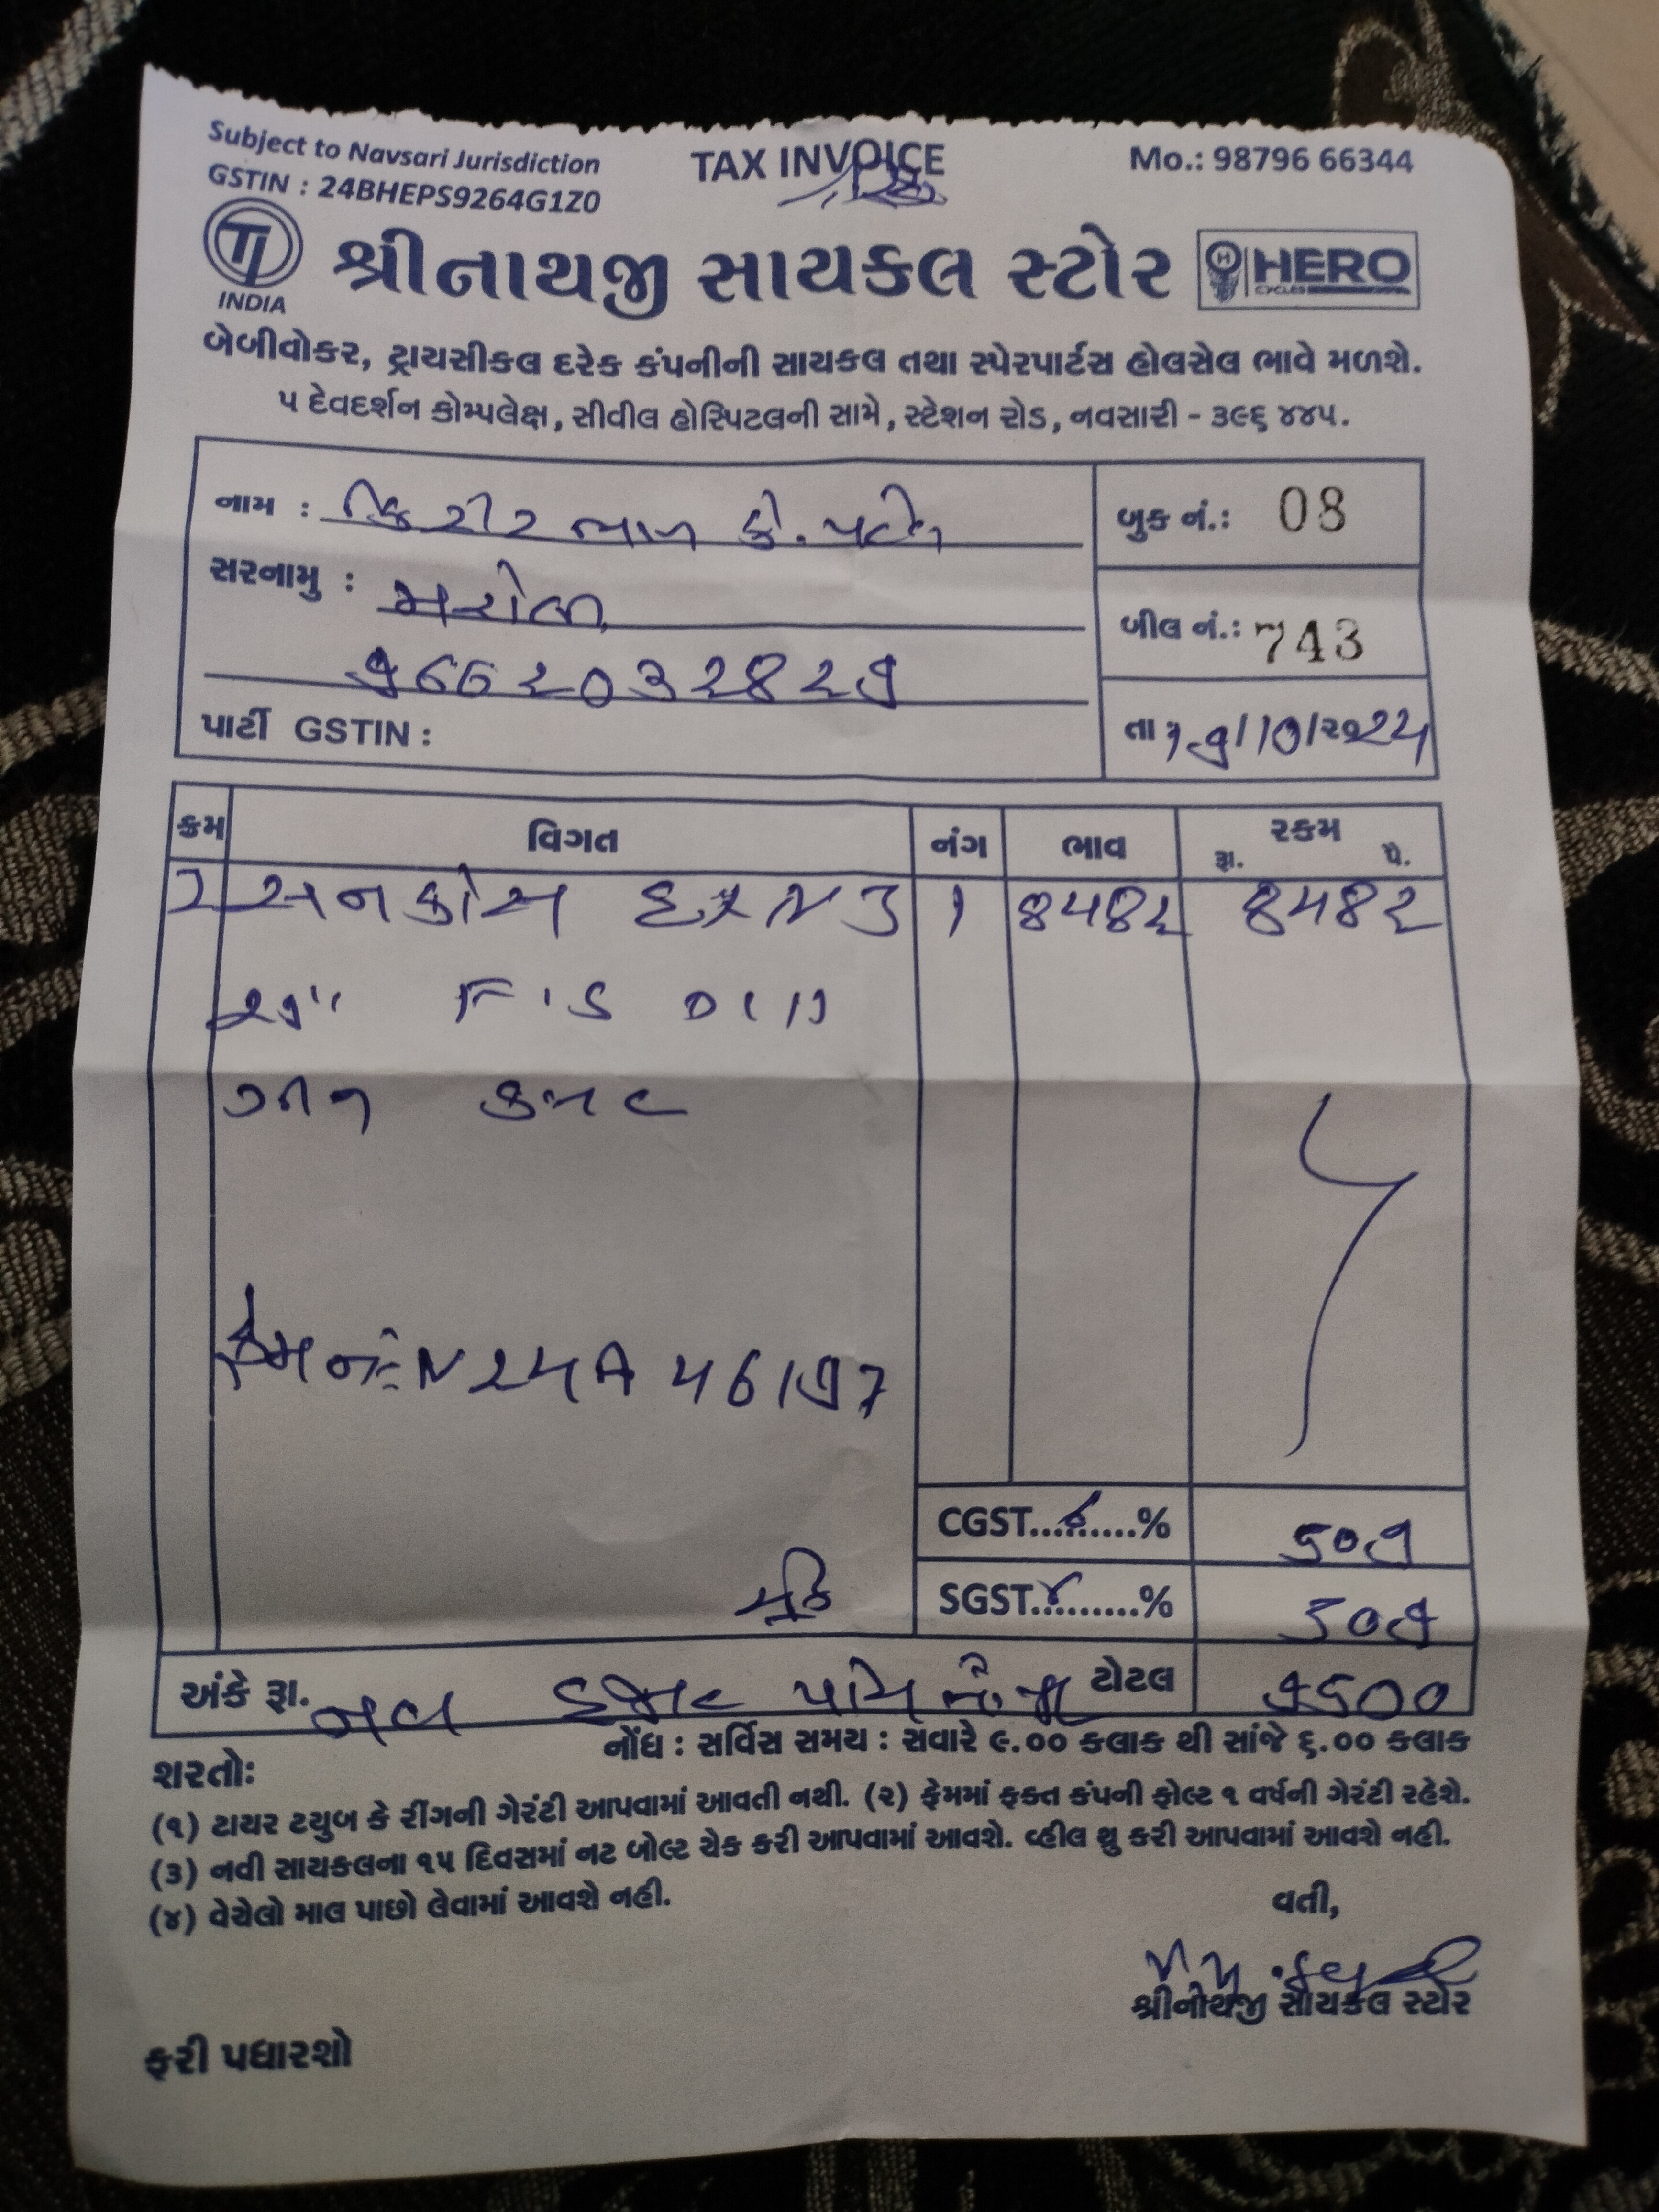 Subject to Navsari Jurisdiction
TAX INVOICE
Mo.: 98796 66344
GSTIN : 24BHEPS9264G1Z0
TI INDIA
શ્રીનાથજી સાયકલ સ્ટોર
HERO CYCLES
બેબીવોકર, ટ્રાયસીકલ દરેક કંપનીની સાયકલ તથા સ્પેરપાર્ટસ હોલસેલ ભાવે મળશે.
૫ દેવદર્શન કોમ્પલેક્ષ, સીવીલ હોસ્પિટલની સામે, સ્ટેશન રોડ, નવસારી - ૩૯૬ ૪૪૫.
નામ : કિશોરભાઇ કે. પટેલ
બુક નં.: 08
સરનામુ : મરોલી
બીલ નં.: 743
પાર્ટી GSTIN :
ક્રમ વિગત નંગ ભાવ રકમ
રૂા. પૈ.
1 8482 8482
ફ્રેમ નં.
CGST.........%
SGST.........%
અંકે રૂા. નવ હજાર પાંચ ટોટલ 9500
નોંધ : સર્વિસ સમય : સવારે ૯.૦૦ કલાક થી સાંજે ૬.૦૦ કલાક
શરતોઃ
(૧) ટાયર ટયુબ કે રીંગની ગેરંટી આપવામાં આવતી નથી. (૨) ફ્રેમમાં ફક્ત કંપની ફોલ્ટ ૧ વર્ષની ગેરંટી રહેશે.
(૩) નવી સાયકલના ૧૫ દિવસમાં નટ બોલ્ટ ચેક કરી આપવામાં આવશે. વ્હીલ થ્રુ કરી આપવામાં આવશે નહી.
(૪) વેચેલો માલ પાછો લેવામાં આવશે નહી.
વતી,
શ્રીનાથજી સાયકલ સ્ટોર
ફરી પધારશો